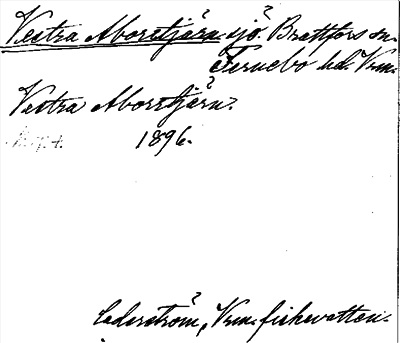 Vestra Aborrtjärn sjö Brattfors sn.
Fernebo hd. Vrm.
Vestra Aborrtjärn.
1896.
Cederström, Vrm. fiskevatten.